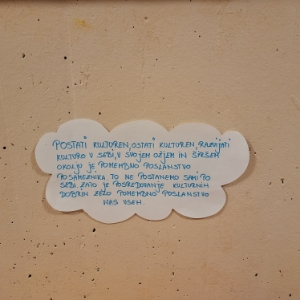 POSTATI KULTUREN, OSTATI KULTUREN, RAZVIJATI
KULTURO V SEBI, V SVOJEM OŽJEM IN ŠIRŠEM
OKOLJU JE POMEMBNO POSLANSTVO
POSAMEZNIKA. TO NE POSTANEMO SAMI PO
SEBI, ZATO JE POSREDOVANJE KULTURNIH
DOBRIN ZELO POMEMBNO POSLANSTVO
NAS VSEH.